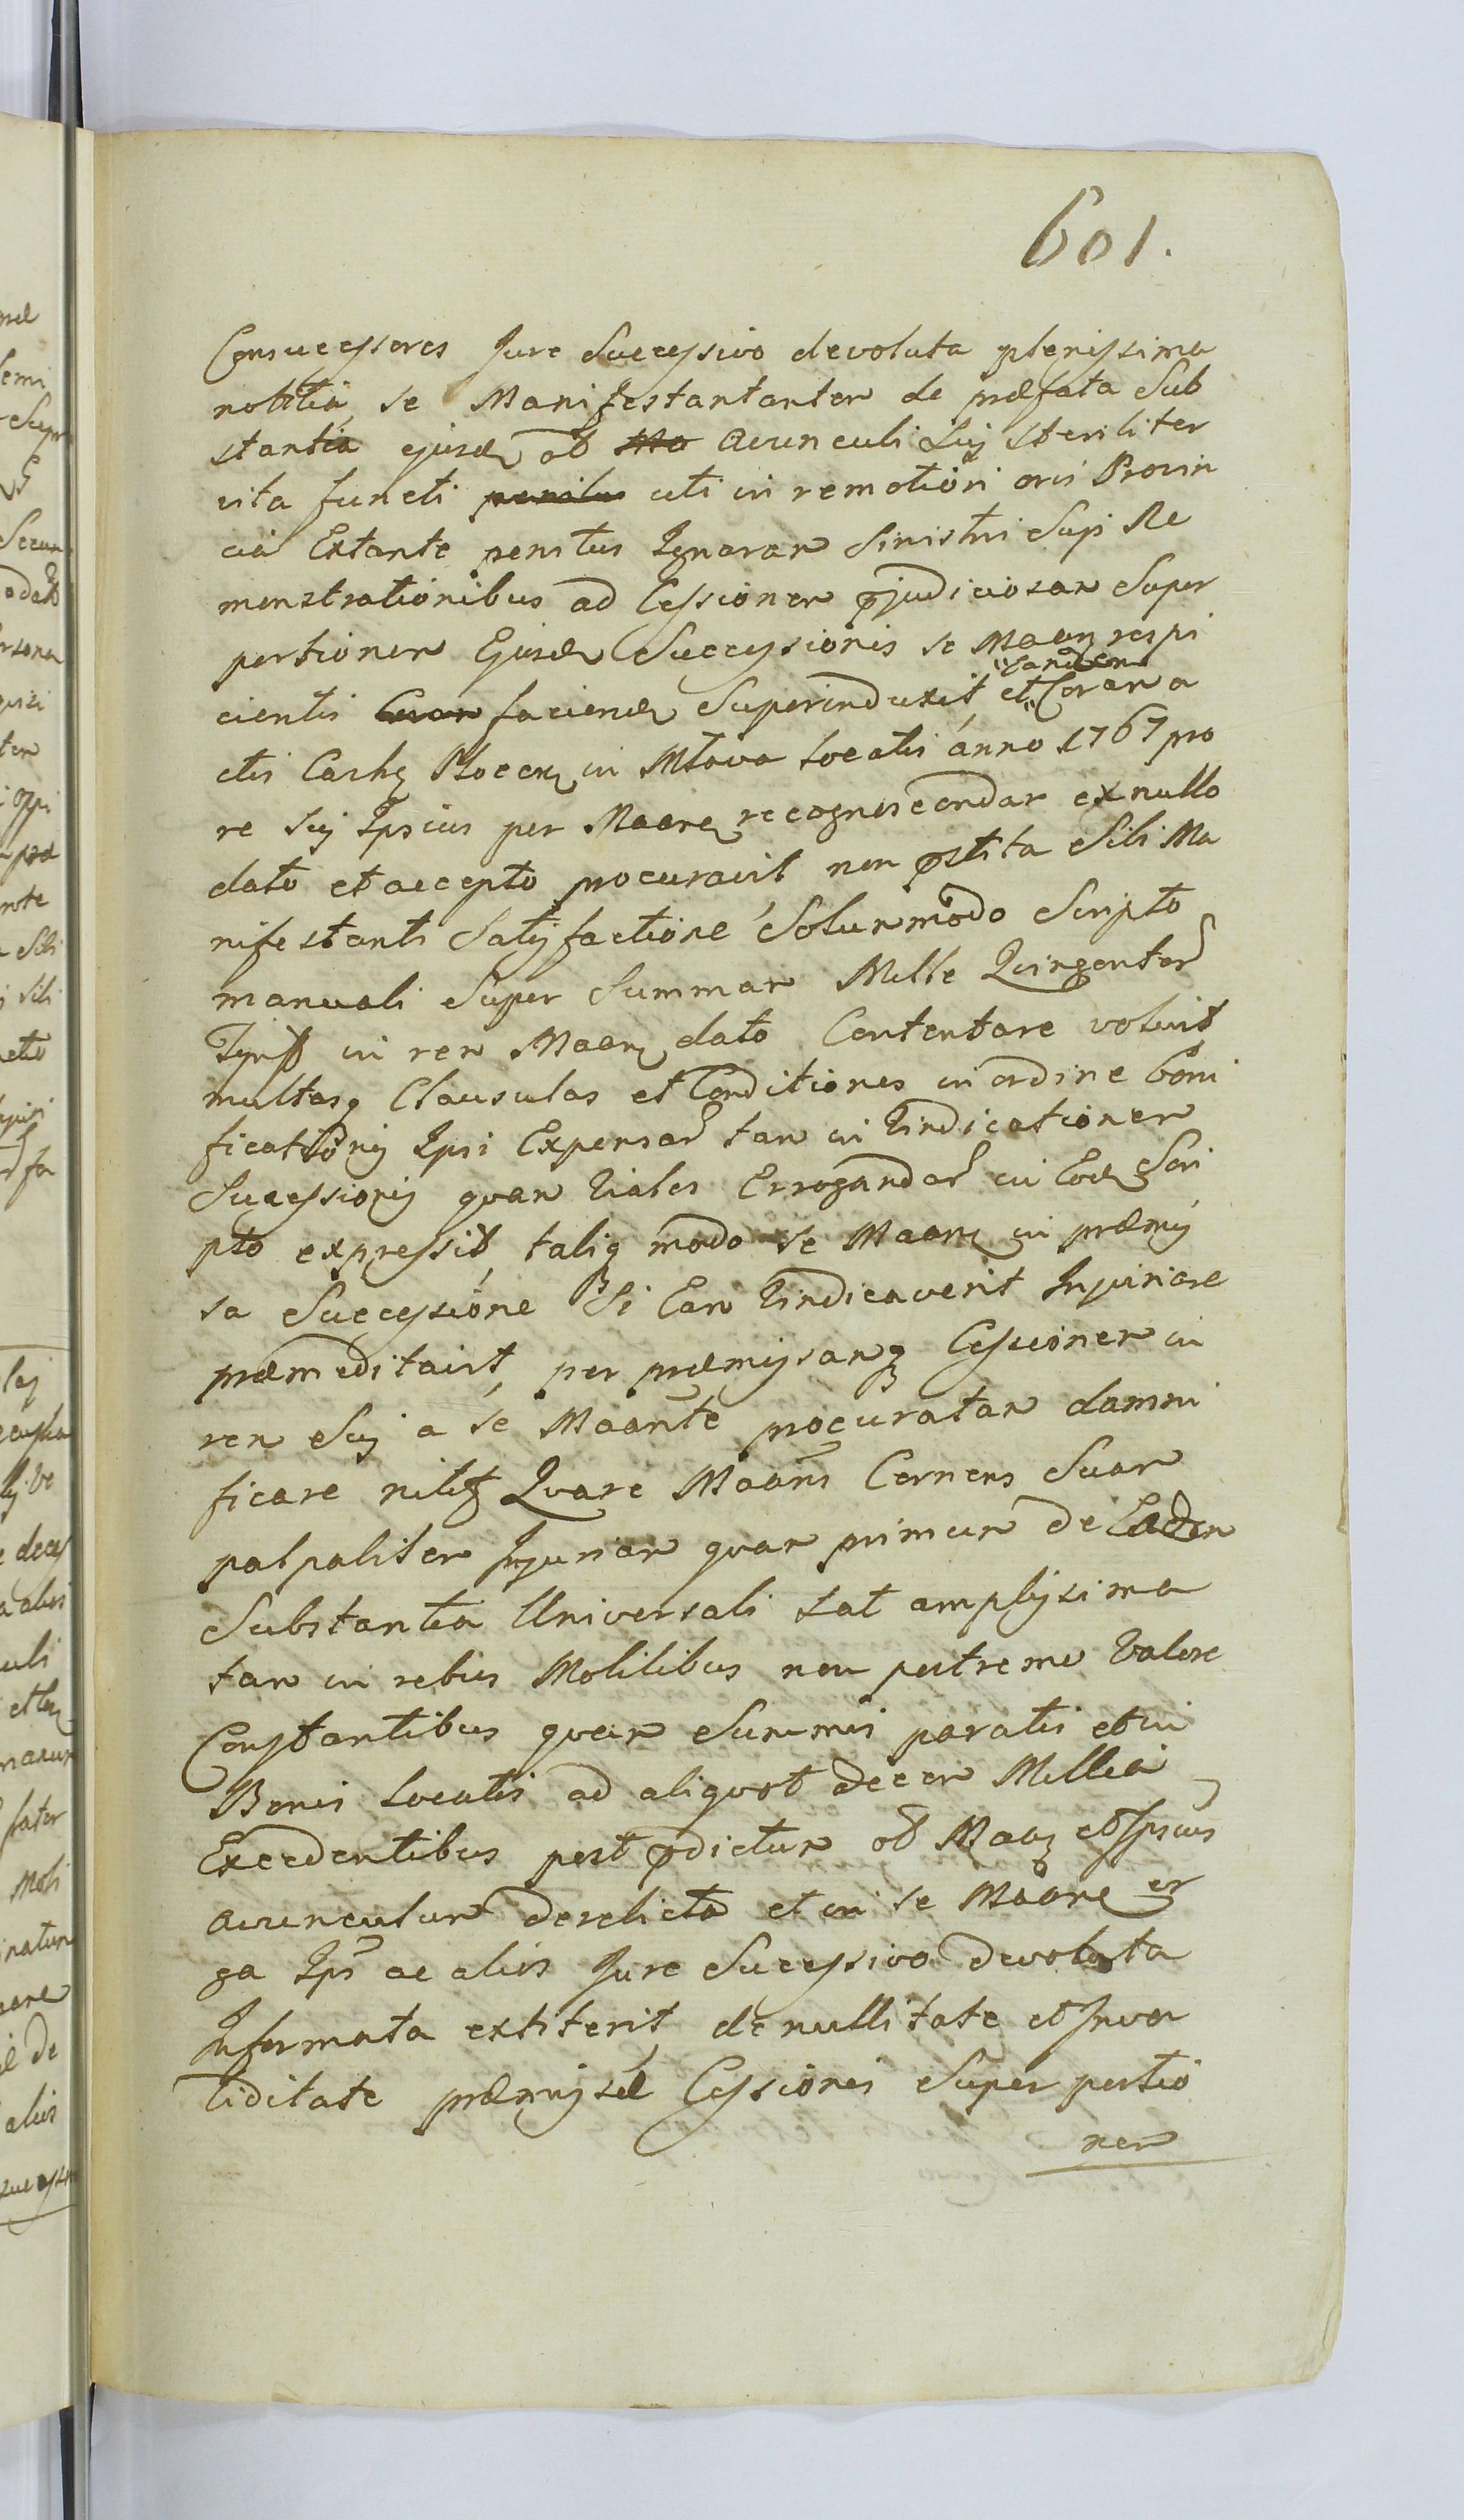 601.
Consuccessores Jure Successivo devoluta plenissima
notitia, se Manifestantantem de præfata Sub
stantia ejusd ob Ma Avunculi Suj steriliter
vita functi penitus uti in remotiori oris Provin
cia Extante penitus Ignaram Sinistri Supi Re
monstrationibus ad Cessionem pjudiciosam Super
portionem Ejusd Successionis se Maan respi
cientis Coram faciend Superinduxit, et "eandem" Coram a
ctis Castr Plocen in Mława locatis anno 1767 pro
re Suj Ipsius per Maane recognoscendam ex nullo
dato et accepto procuravit, non pstita Sibi Ma
nifestanti Satisfactione, Solummodo Scripto
manuali Super Summam Mille Quingentor
Tynff in rem Maan dato Contentare voluit,
multasq Clausulas et Conditiones in ordine boni
ficationis Ipsi Expensar tam in Vindicationem
Sucessionis quam Viales Errogandar in Eod Scri
pto expressit, taliq modo se Maane in præmis
sa Successione Si Eam Vindicaverit Injuriare
præmeditavit, per præmissamq Cessionem in
rem Suj a se Maante procuratam damni
ficare nititz Quare Maans Cernens Suam
palpaliter Injuriam quam primum de Eadem
Substantia Universali sat amplissima
tam in rebus Mobilibus non postremo Valore
Constantibus quam Summis paratis et in
Bonis locatis ad aliquot decem Millia
Excedentibus post pdictum ob Maan et Ipsius
avunculum derelicta et in se Maane er
ga Ips ac alios Jure Sucessivo devoluta
Informata extiterit, de nullitate et Inva
liditate præmissæ Cessionis Super portio
nem